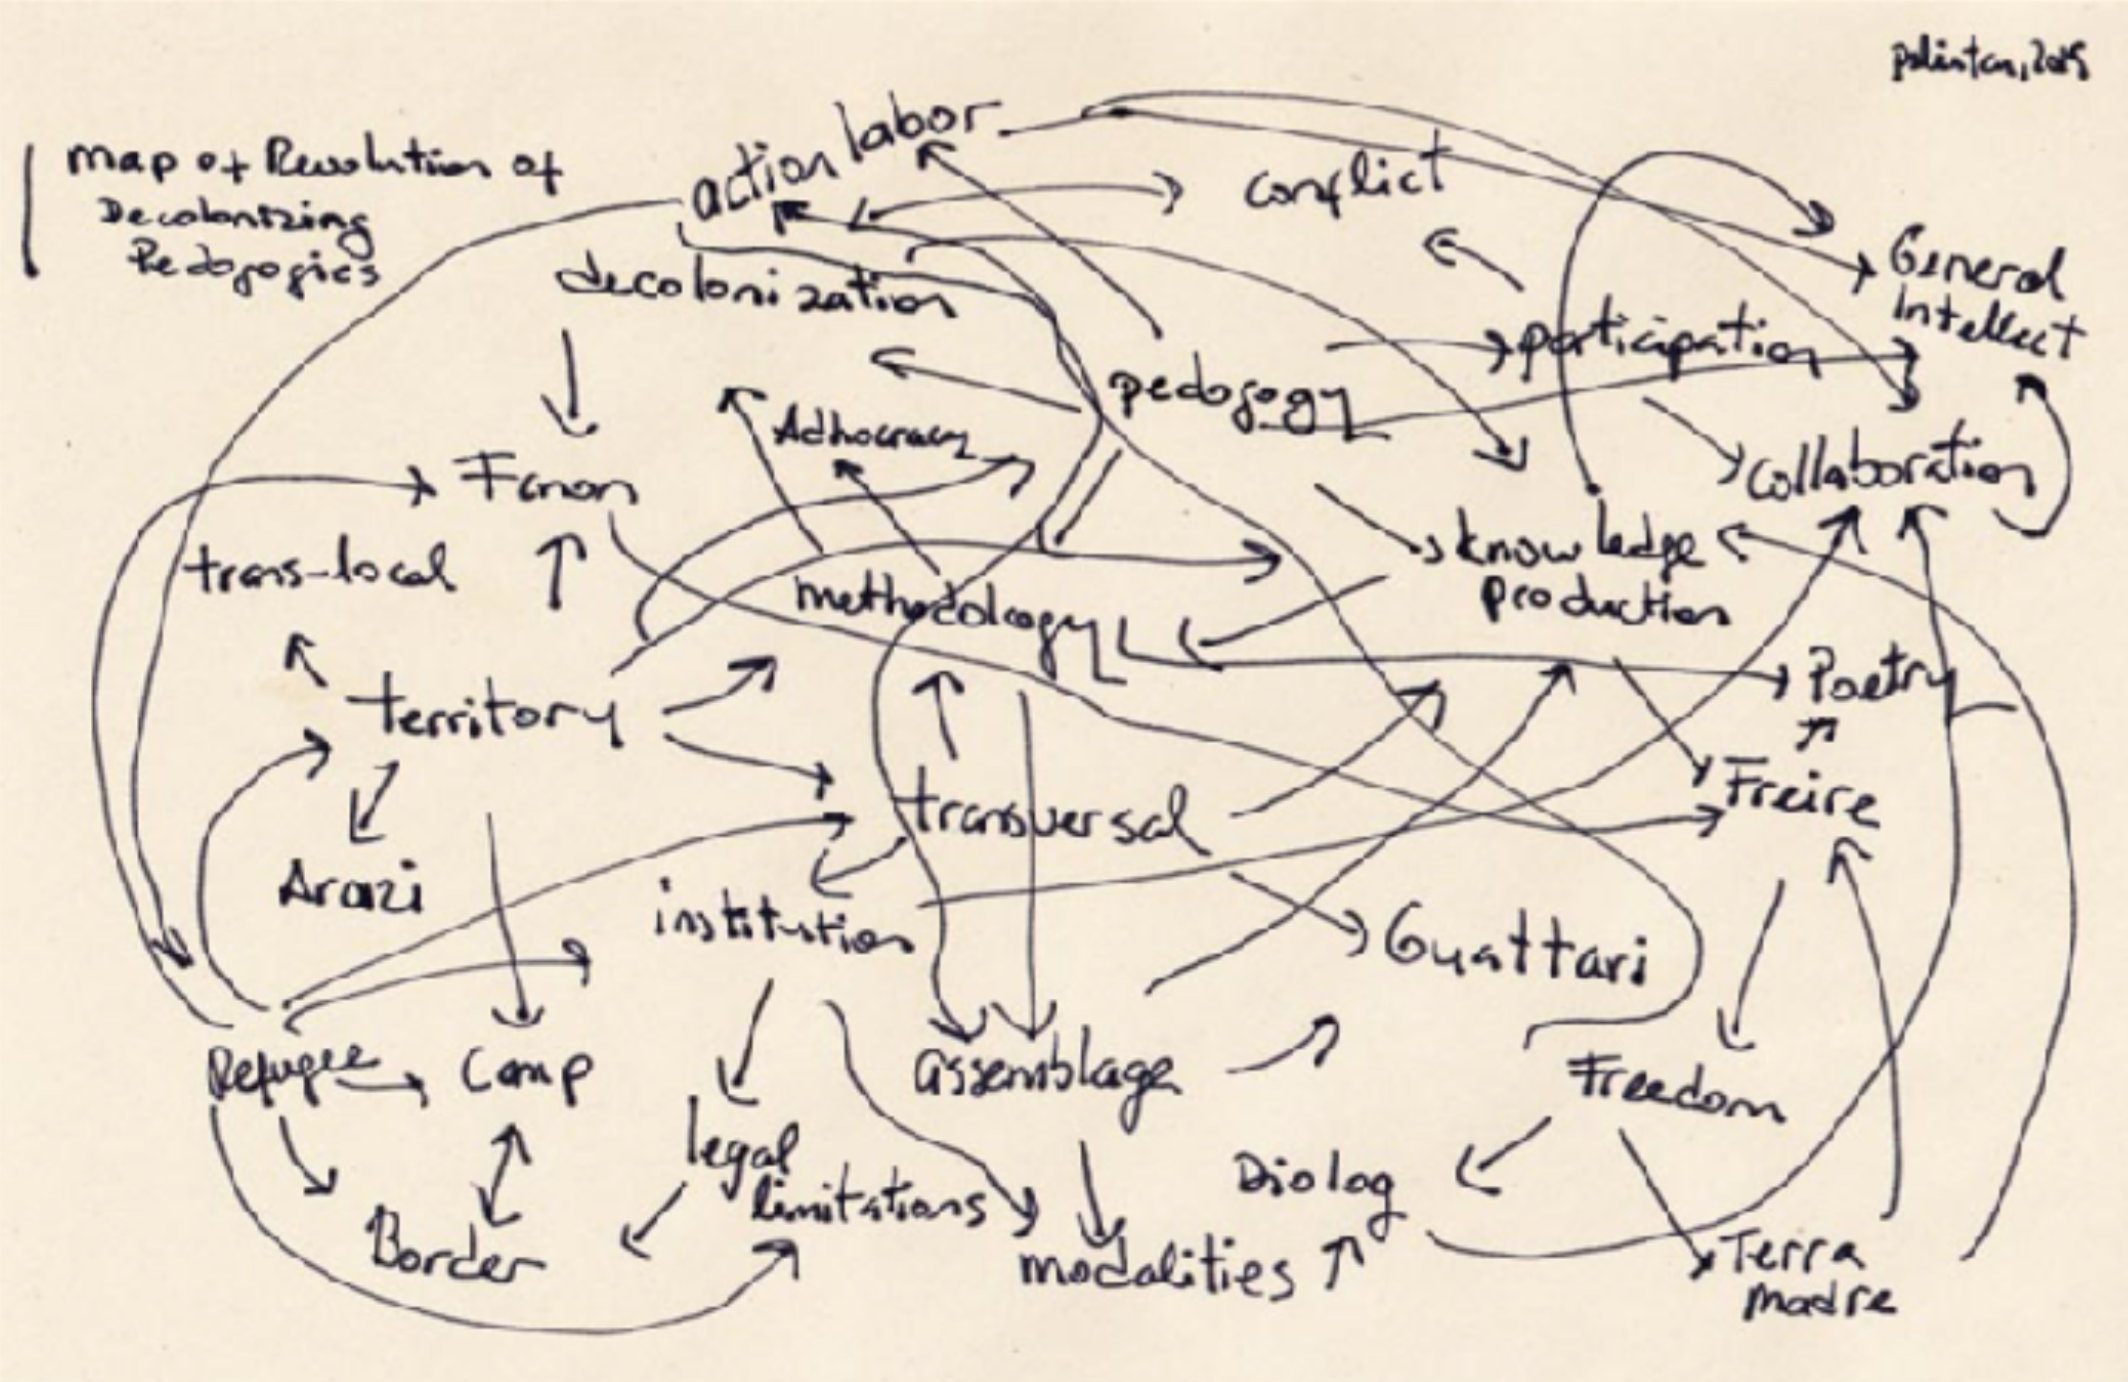 map of Revolution of
Decolonizing
Pedogogies
labor
action
conflict
General
Intellect
decolonization
participation
pedogogy
Adhocracy
Collaboration
Fanon
trans-local
knowledge
production
methodology
Poetry
territory
Freire
transversal
Arazi
institution
Guattari
Refugee
Camp
assemblage
Freedom
legal
limitations
Dialog
Border
modalities
Terra
Madre